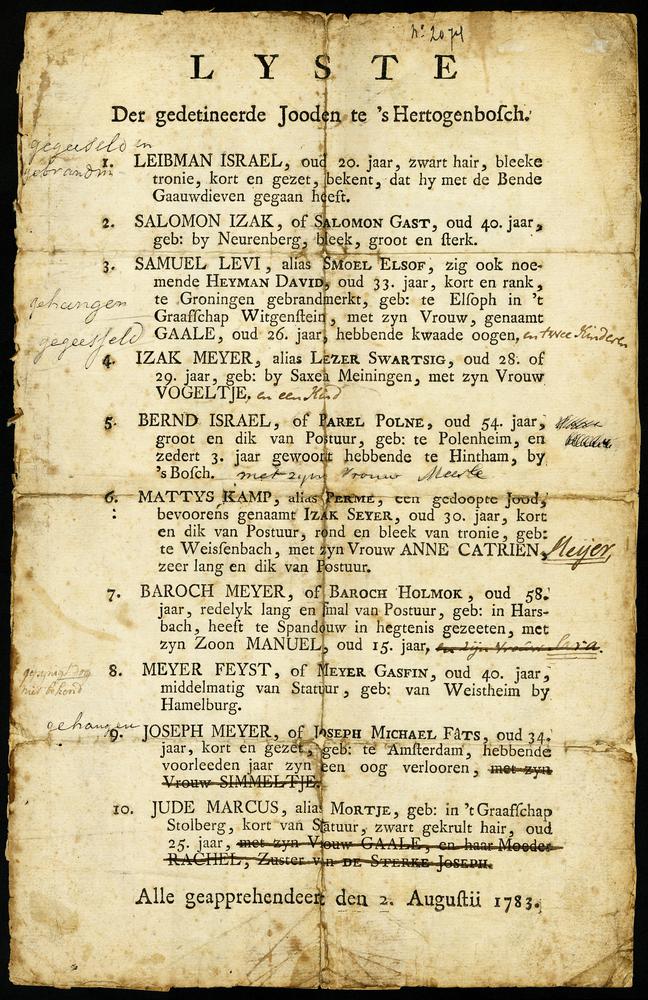 No 2074
LYSTE
Der gedetineerde Jooden te 's Hertogenboſch.
gegeeseld en
gebrandm
1. LEIBMAN ISRAEL, oud 20. jaar, zwart hair, bleeke
tronie, kort en gezet, bekent, dat hy met de Bende
Gaauwdieven gegaan heeft.
2. SALOMON IZAK, of SALOMON GAST, oud 40. jaar,
geb: by Neurenberg, bleek, groot en ſterk.
3. SAMUEL LEVI, alias SMOEL ELSOF, zig ook noe-
mende HEYMAN DAVID, oud 33. jaar, kort en rank,
gehangen
te Groningen gebrandmerkt, geb: te Elſoph in 't
Graafſchap Witgenſtein, met zyn Vrouw, genaamt
gegeesſeld
GAALE, oud 26. jaar, hebbende kwaade oogen, en twee Kinderen
4. IZAK MEYER, alias LEZER SWARTSIG, oud 28. of
29. jaar, geb: by Saxen Meiningen, met zyn Vrouw
VOGELTJE, en een Kind
5. BERND ISRAEL, of PAREL POLNE, oud 54. jaar,
groot en dik van Poſtuur, geb: te Polenheim, en
zedert 3. jaar gewoont hebbende te Hintham, by
's Boſch. met zijn Vrouw
6. MATTYS KAMP, alias PERME, een gedoopte Jood,
: bevoorens genaamt IZAK SEYER, oud 30. jaar, kort
en dik van Poſtuur, rond en bleek van tronie, geb:
te Weisſenbach, met zyn Vrouw ANNE CATRIEN, Meijer,
zeer lang en dik van Poſtuur.
7. BAROCH MEYER, of BAROCH HOLMOK, oud 58.
jaar, redelyk lang en ſmal van Poſtuur, geb: in Hars-
bach, heeft te Spandouw in hegtenis gezeeten, met
zyn Zoon MANUEL, oud 15. jaar, en zijn Vrouw Sara.
8. MEYER FEYST, of MEYER GASFIN, oud 40. jaar,
middelmatig van Statuur, geb: van Weistheim by
Hamelburg.
gehangen
9. JOSEPH MEYER, of JOSEPH MICHAEL FÂTS, oud 34.
jaar, kort en gezet, geb: te Amſterdam, hebbende
voorleeden jaar zyn een oog verlooren, met zyn
Vrouw SIMMELTJE.
10. JUDE MARCUS, alias MORTJE, geb: in 't Graafſchap
Stolberg, kort van Statuur, zwart gekrult hair, oud
25. jaar, met zyn Vrouw GAALE, en haar Moeder
RACHEL, Zuster van DE STERKE JOSEPH.
Alle geapprehendeert den 2. Auguſtii 1783.